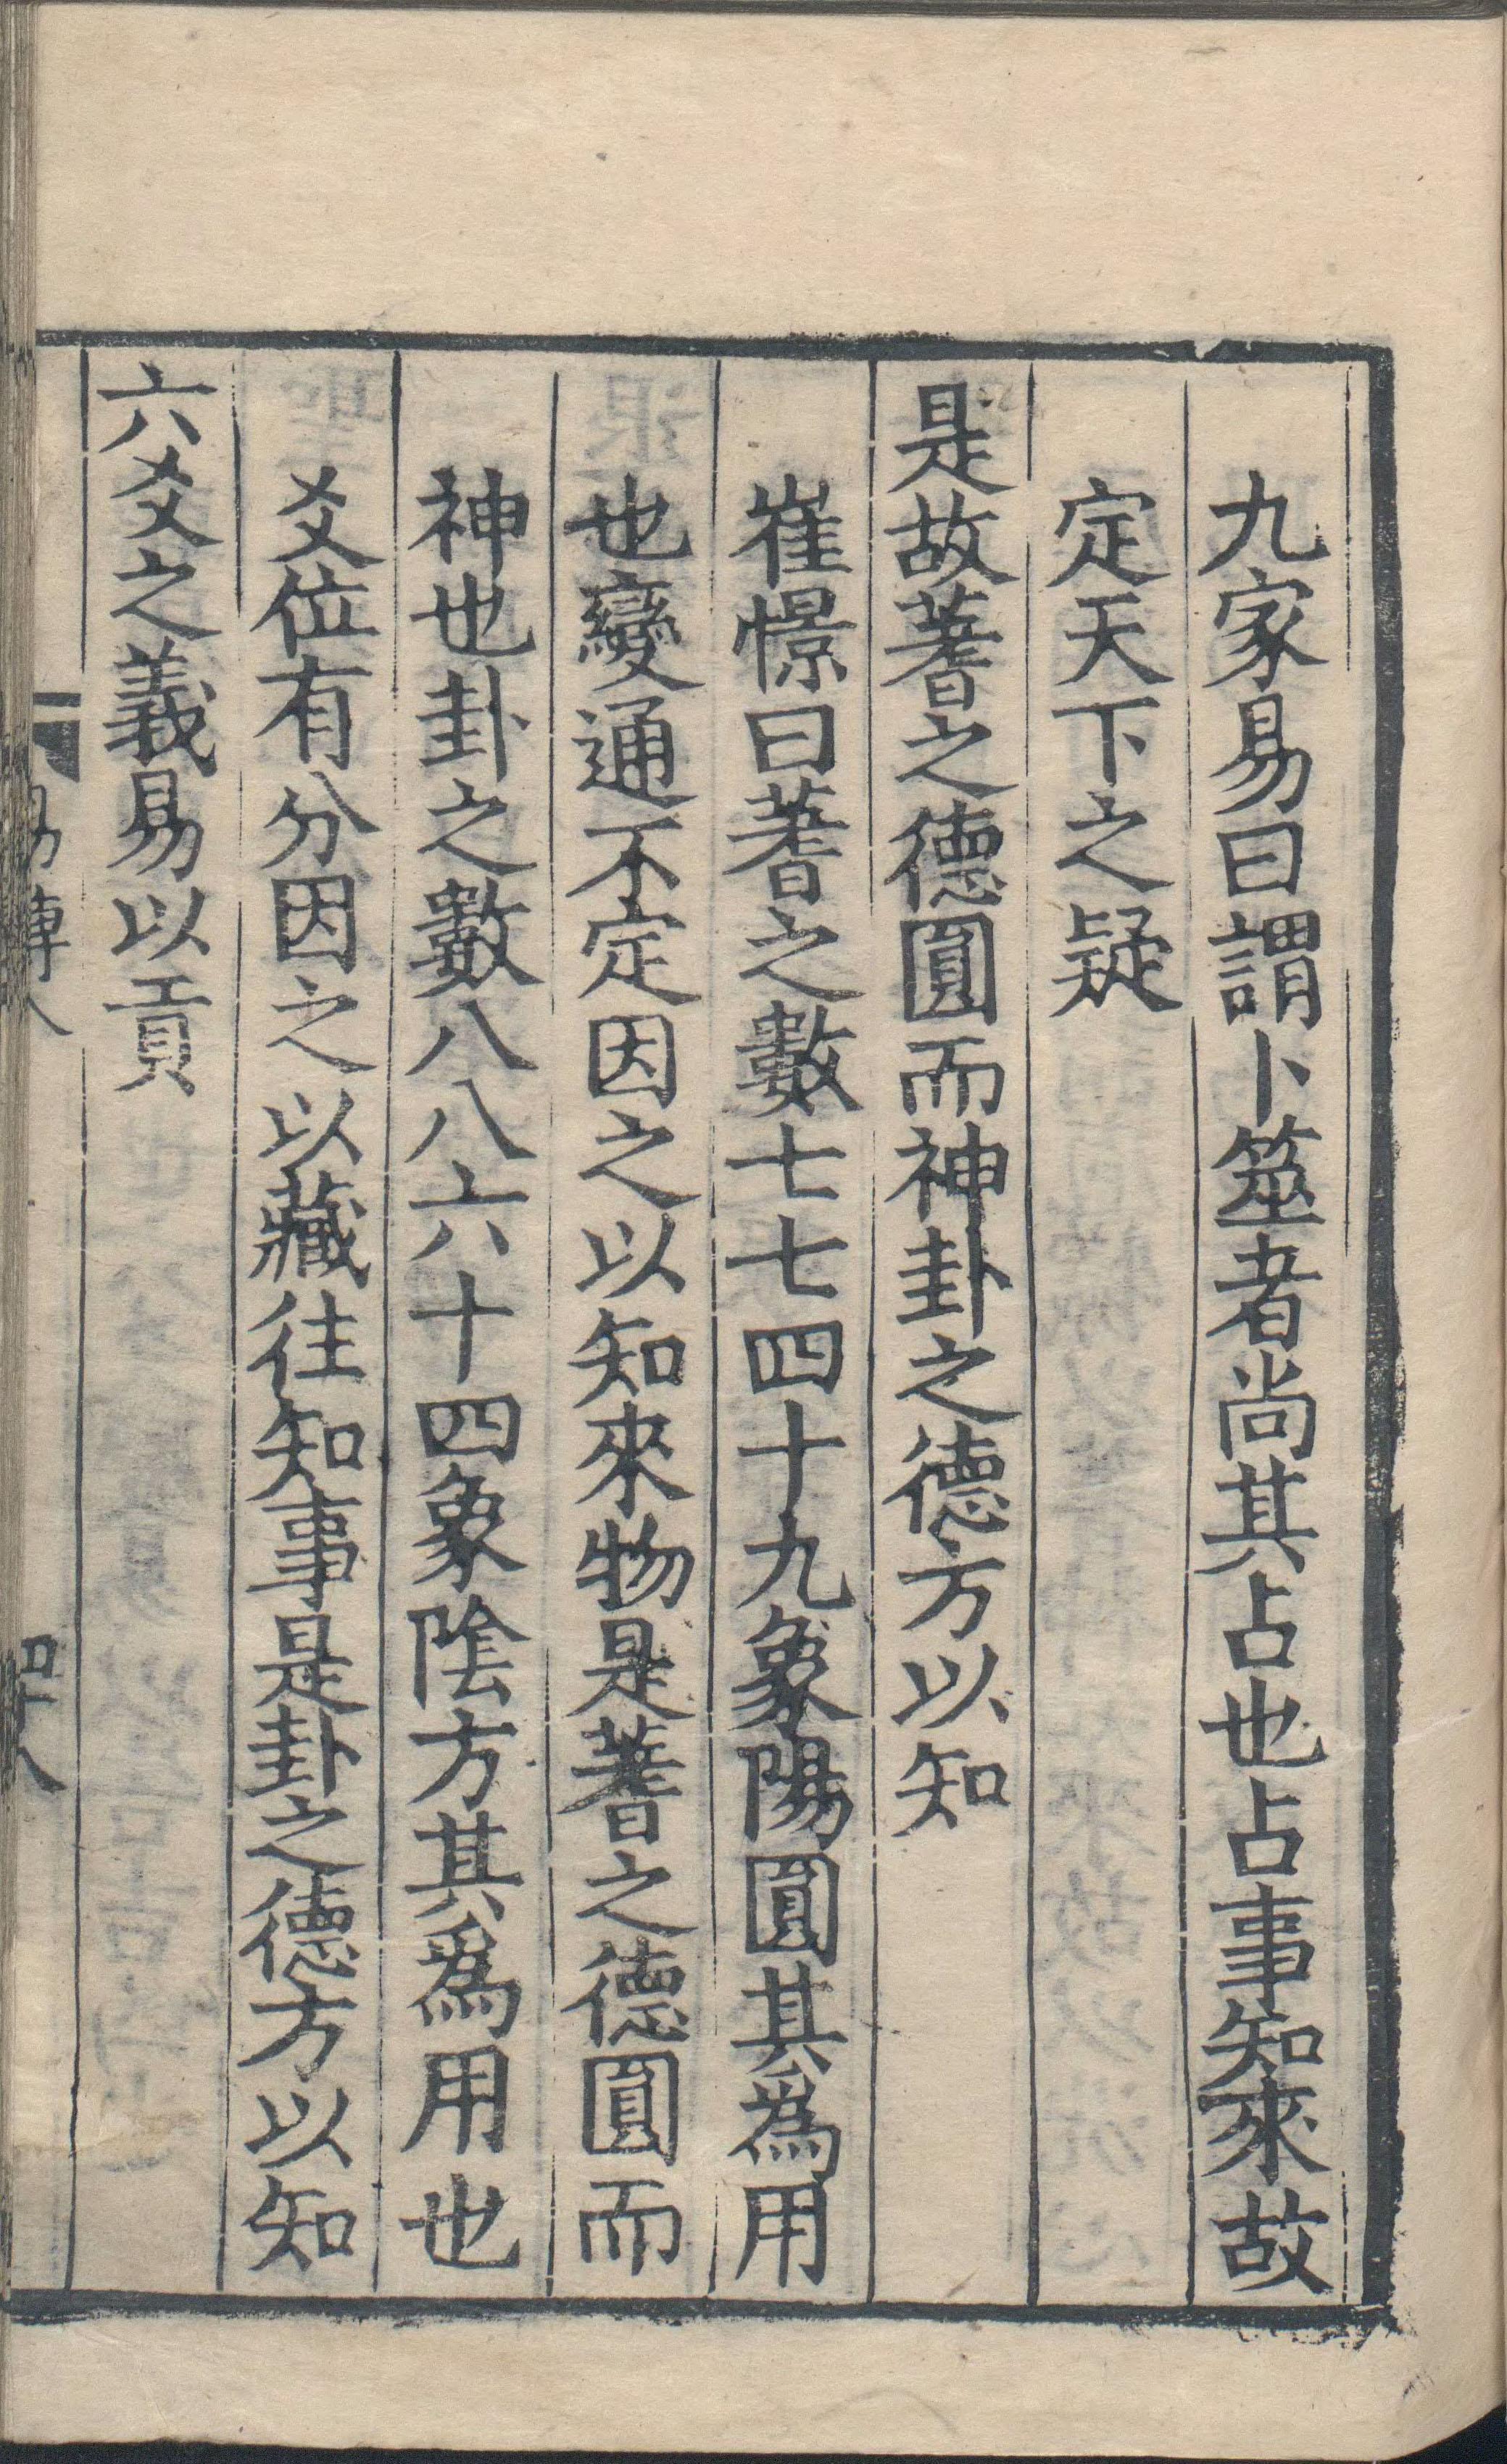 九家易曰謂卜筮者尚其占也占事知來故
定天下之疑
是故蓍之德圓而神卦之德方以知
崔憬曰蓍之數七七四十九象陽圓其爲用
也變通不定因之以知來物是蓍之德圓而
神也卦之數八八六十四象陰方其爲用也
爻位有分因之以藏往知事是卦之德方以知
六爻之義易以貢